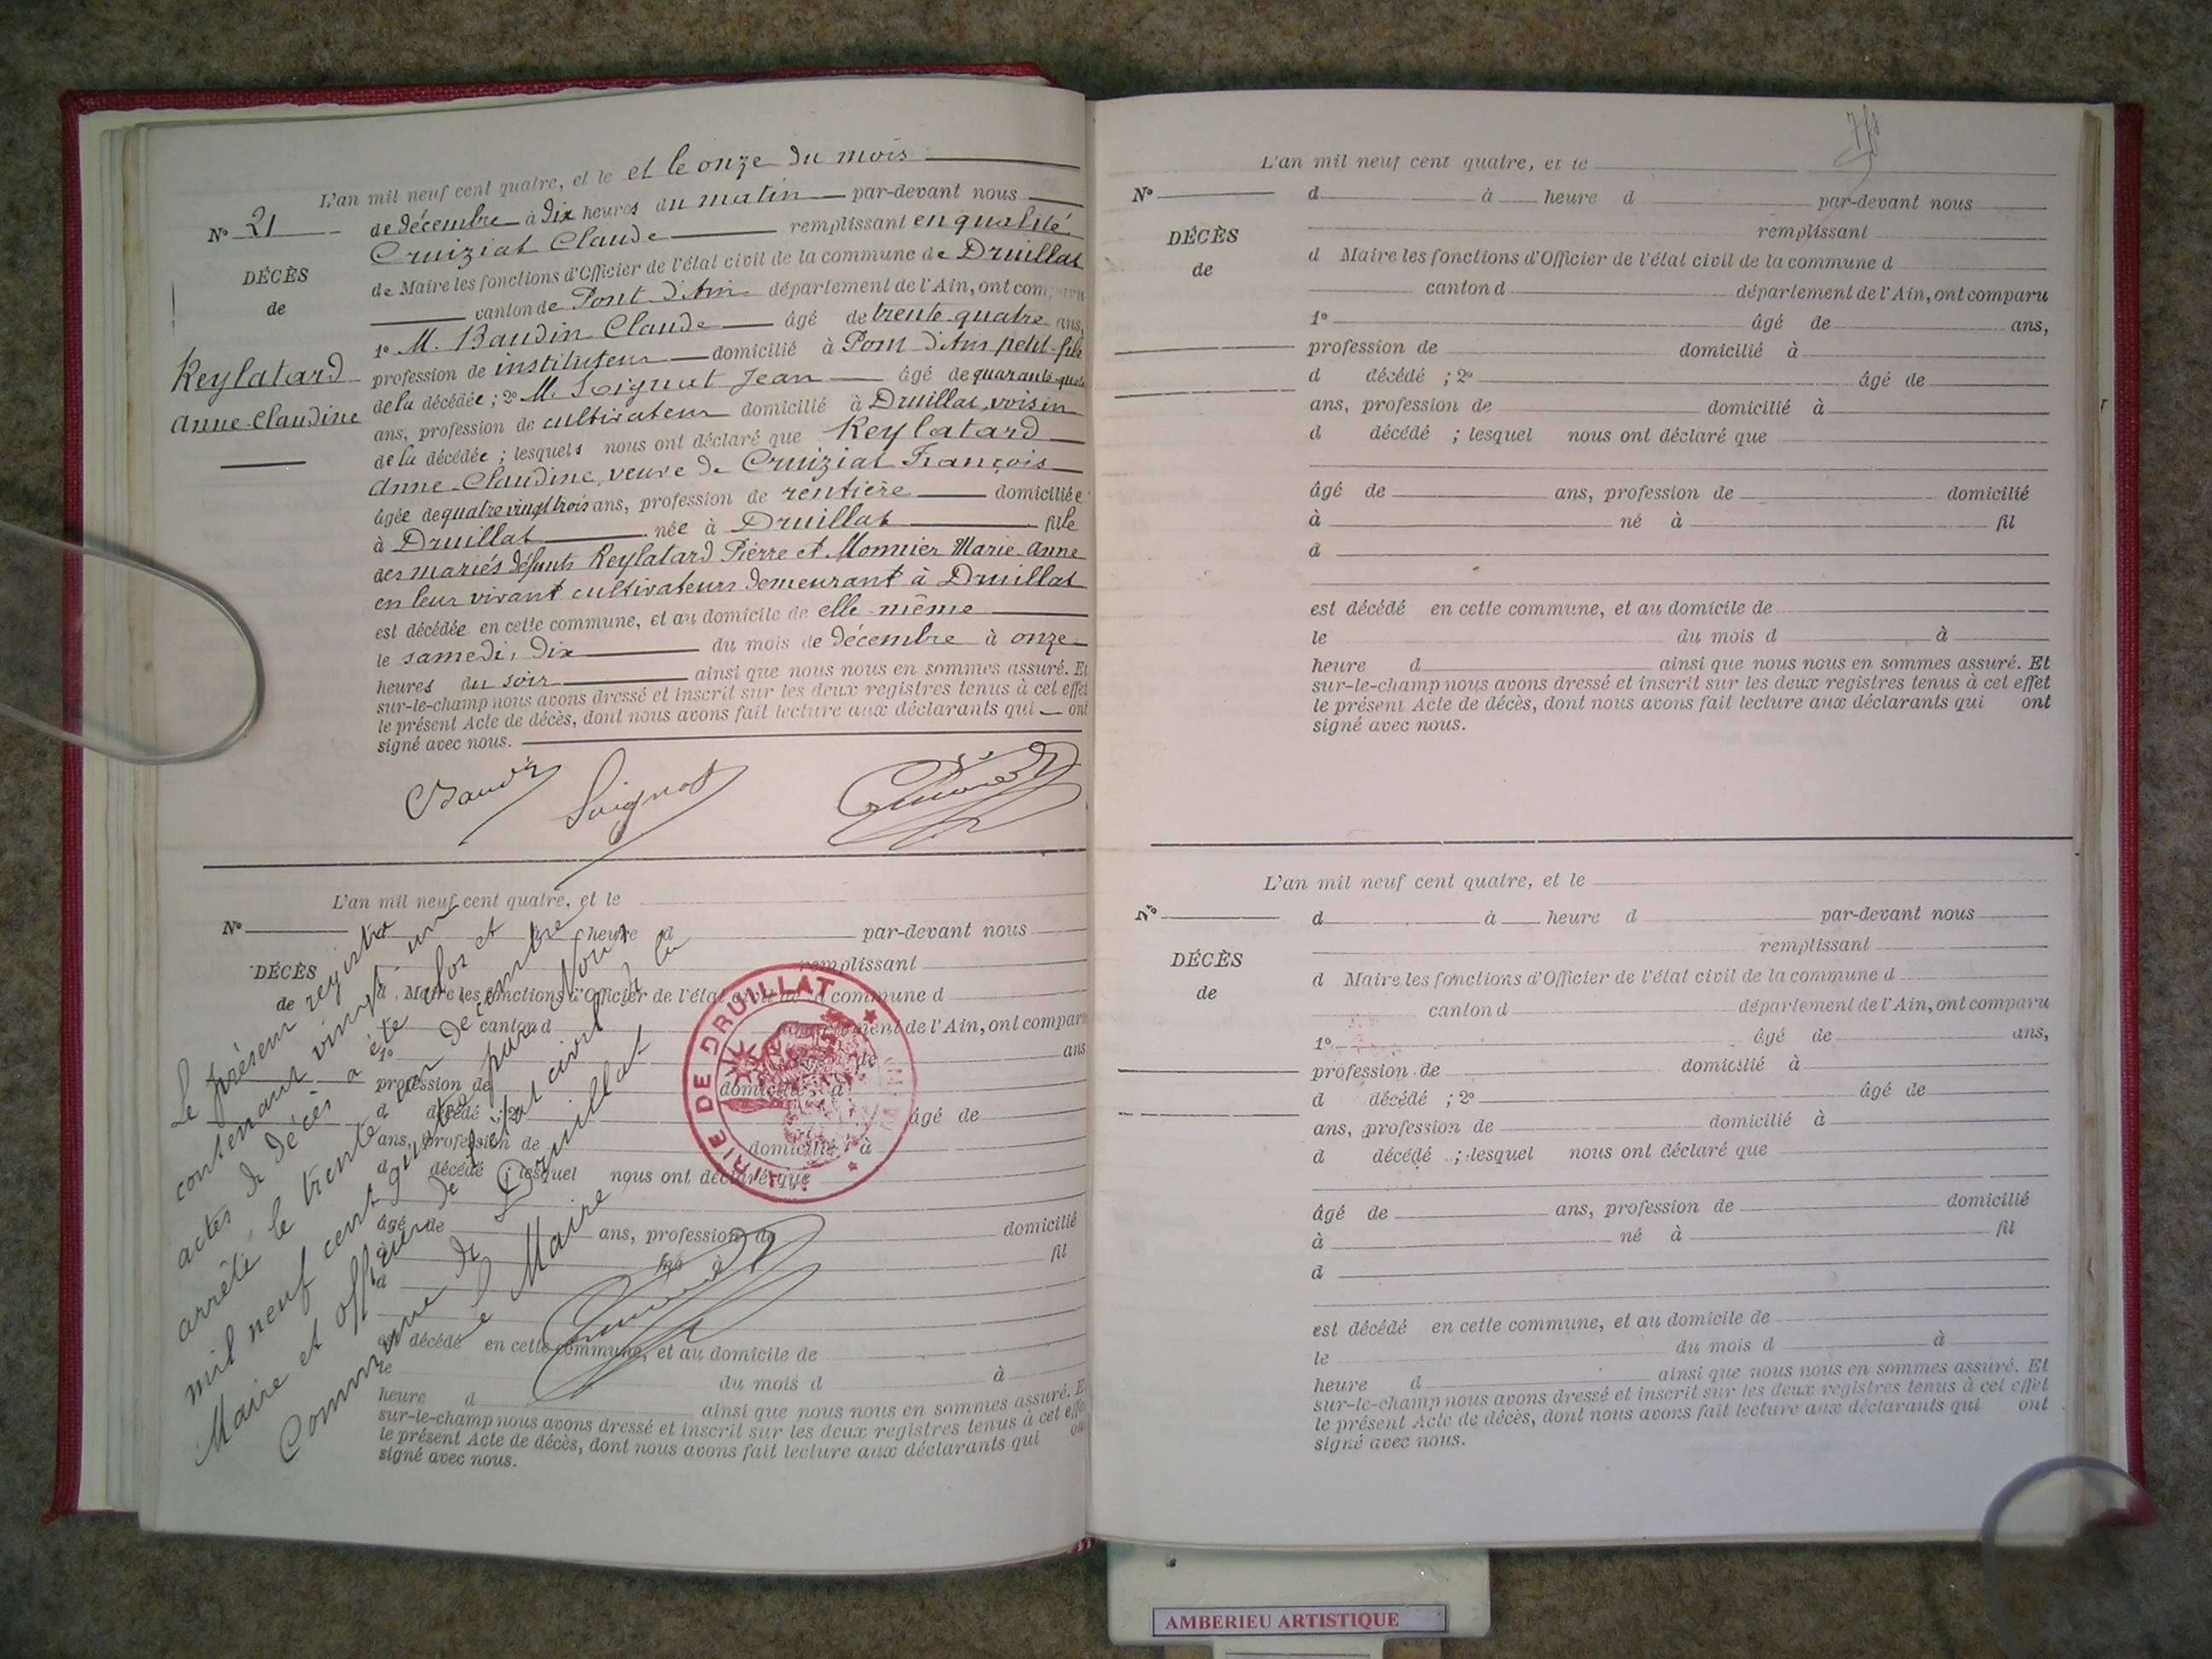 L'an mil neuf cent quatre, et le et le onze du mois
N° 21
de décembre à dix heures du matin par-devant nous
Cruiziat Claude remplissant en qualité
DÉCÈS
de Maire les fonctions d'Officier de l'état civil de la commune de Druillat
de
canton de Pont d'Ain département de l'Ain, ont comparu
1° M. Baudin Claude âgé de trente quatre ans,
Reylatard
profession de instituteur domicilié à Pont d'Ain petit-fils
de la décédée ; 2° M. Soignat Jean âgé de quarante-quatre
Anne-Claudine
ans, profession de cultivateur domicilié à Druillat, voisin
de la décédée ; lesquels nous ont déclaré que Reylatard
Anne-Claudine, veuve de Cruiziat François
âgée de quatre vingt trois ans, profession de rentière domiciliée
à Druillat née à Druillat fille
des mariés défunts Reylatard Pierre et Monnier Marie-Anne
en leur vivant cultivateurs demeurant à Druillat
est décédée en cette commune, et au domicile de elle-même
le samedi, dix du mois de décembre à onze
heures du soir ainsi que nous nous en sommes assuré. Et
sur-le-champ nous avons dressé et inscrit sur les deux registres tenus à cet effet
le présent Acte de décès, dont nous avons fait lecture aux déclarants qui ont
signé avec nous.
Baudin Soignat
L'an mil neuf cent quatre, et le
N°
heure d par-devant nous
remplissant
DÉCÈS
de
d Maire les fonctions d'Officier de l'état civil de la commune d
canton d département de l'Ain, ont comparu
1° âgé de ans
profession de domicilié à
d décédé ; 2° âgé de
ans, profession de domicilié à
d décédé ; lesquel nous ont déclaré que
âgé de ans, profession de domicilié
à né à fil
d
est décédé en cette commune, et au domicile de
le du mois d à
heure d ainsi que nous nous en sommes assuré. Et
sur-le-champ nous avons dressé et inscrit sur les deux registres tenus à cet effet
le présent Acte de décès, dont nous avons fait lecture aux déclarants qui ont
signé avec nous.
Le présent registre
contenant vingt un
actes de décès a été clos et
arrêté le trente un décembre
mil neuf cent quatre par Nous
Maire et officier de l'état civil de la
Commune de Druillat
Le Maire
MAIRIE DE DRUILLAT
L'an mil neuf cent quatre, et le
N° d à heure d par-devant nous
remplissant
DÉCÈS
de
d Maire les fonctions d'Officier de l'état civil de la commune d
canton d département de l'Ain, ont comparu
1° âgé de ans,
profession de domicilié à
d décédé ; 2° âgé de
ans, profession de domicilié à
d décédé ; lesquel nous ont déclaré que
âgé de ans, profession de domicilié
à né à fil
d
est décédé en cette commune, et au domicile de
le du mois d à
heure d ainsi que nous nous en sommes assuré. Et
sur-le-champ nous avons dressé et inscrit sur les deux registres tenus à cet effet
le présent Acte de décès, dont nous avons fait lecture aux déclarants qui ont
signé avec nous.
L'an mil neuf cent quatre, et le
N° d à heure d par-devant nous
remplissant
DÉCÈS
de
d Maire les fonctions d'Officier de l'état civil de la commune d
canton d département de l'Ain, ont comparu
1° âgé de ans,
profession de domicilié à
d décédé ; 2° âgé de
ans, profession de domicilié à
d décédé ; lesquel nous ont déclaré que
âgé de ans, profession de domicilié
à né à fil
d
est décédé en cette commune, et au domicile de
le du mois d à
heure d ainsi que nous nous en sommes assuré. Et
sur-le-champ nous avons dressé et inscrit sur les deux registres tenus à cet effet
le présent Acte de décès, dont nous avons fait lecture aux déclarants qui ont
signé avec nous.
AMBERIEU ARTISTIQUE